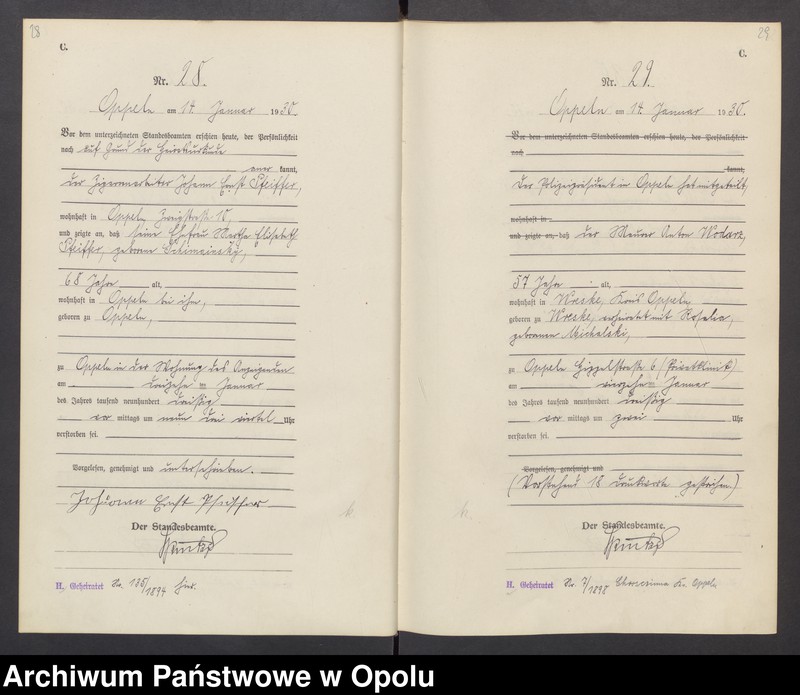 28
C.
Nr. 28.
Oppeln am 14. Januar 1930.
Vor dem unterzeichneten Standesbeamten erschien heute, der Persönlichkeit
nach auf Grund der Heiratsurkunde
aner kannt,
der Zigarrenarbeiter Johann Ernst Pfeiffer,
wohnhaft in Oppeln, 10,
und zeigte an, daß seine Ehefrau Martha Elisabeth
Pfeiffer, geborene
68 Jahre alt,
wohnhaft in Oppeln bei ihm,
geboren zu Oppeln,
zu Oppeln in der Wohnung des Anzeigenden
am dreizehn ten Januar
des Jahres tausend neunhundert dreißig
vor mittags um neun drei viertel Uhr
verstorben sei.
Vorgelesen, genehmigt und unterschrieben.
Johann Ernst Pfeiffer
Der Standesbeamte.
H. Geheiratet Nr. 135/1894 hier.
29
C.
Nr. 29.
Oppeln am 14. Januar 1930.
Vor dem unterzeichneten Standesbeamten erschien heute, der Persönlichkeit
nach
kannt,
Der Polizeipräsident in Oppeln hat mitgeteilt,
wohnhaft in
und zeigte an, daß der Maurer Anton Wodarz,
57 Jahre alt,
wohnhaft in Wreske, Kreis Oppeln
geboren zu Wreske, verheiratet mit Rosalia,
geborenen Michalski,
zu Oppeln 6 (Privatklinik)
am vierzehn ten Januar
des Jahres tausend neunhundert dreißig
vor mittags um zwei Uhr
verstorben sei.
Vorgelesen, genehmigt und
(Vorstehend 18 Druckworte gestrichen.)
Der Standesbeamte.
H. Geheiratet Nr. 7/1898 Chrosczinna Kr. Oppeln
Archiwum Państwowe w Opolu